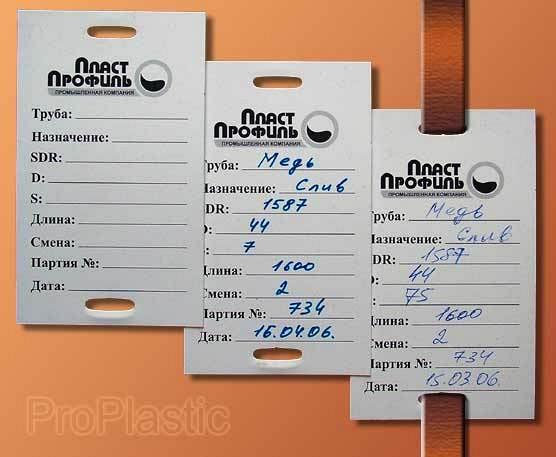 ПЛАСТ
ПРОФИЛЬ
ПРОМЫШЛЕННАЯ КОМПАНИЯ
Труба:
Назначение:
SDR:
D:
S:
Длина:
Смена:
Партия №:
Дата:
ПЛАСТ
ПРОФИЛЬ
ПРОМЫШЛЕННАЯ КОМПАНИЯ
Труба: Медь
Назначение: Слив
SDR: 1587
: 44
: 7
Длина: 1600
Смена: 2
Партия №: 734
Дата: 15.04.06.
ПЛАСТ
ПРОФИЛЬ
ПРОМЫШЛЕННАЯ КОМПАНИЯ
Труба: Медь
Назначение: Слив
SDR: 1587
: 44
: 75
Длина: 1600
Смена: 2
Партия №: 734
Дата: 15.03.06.
ProPlastic